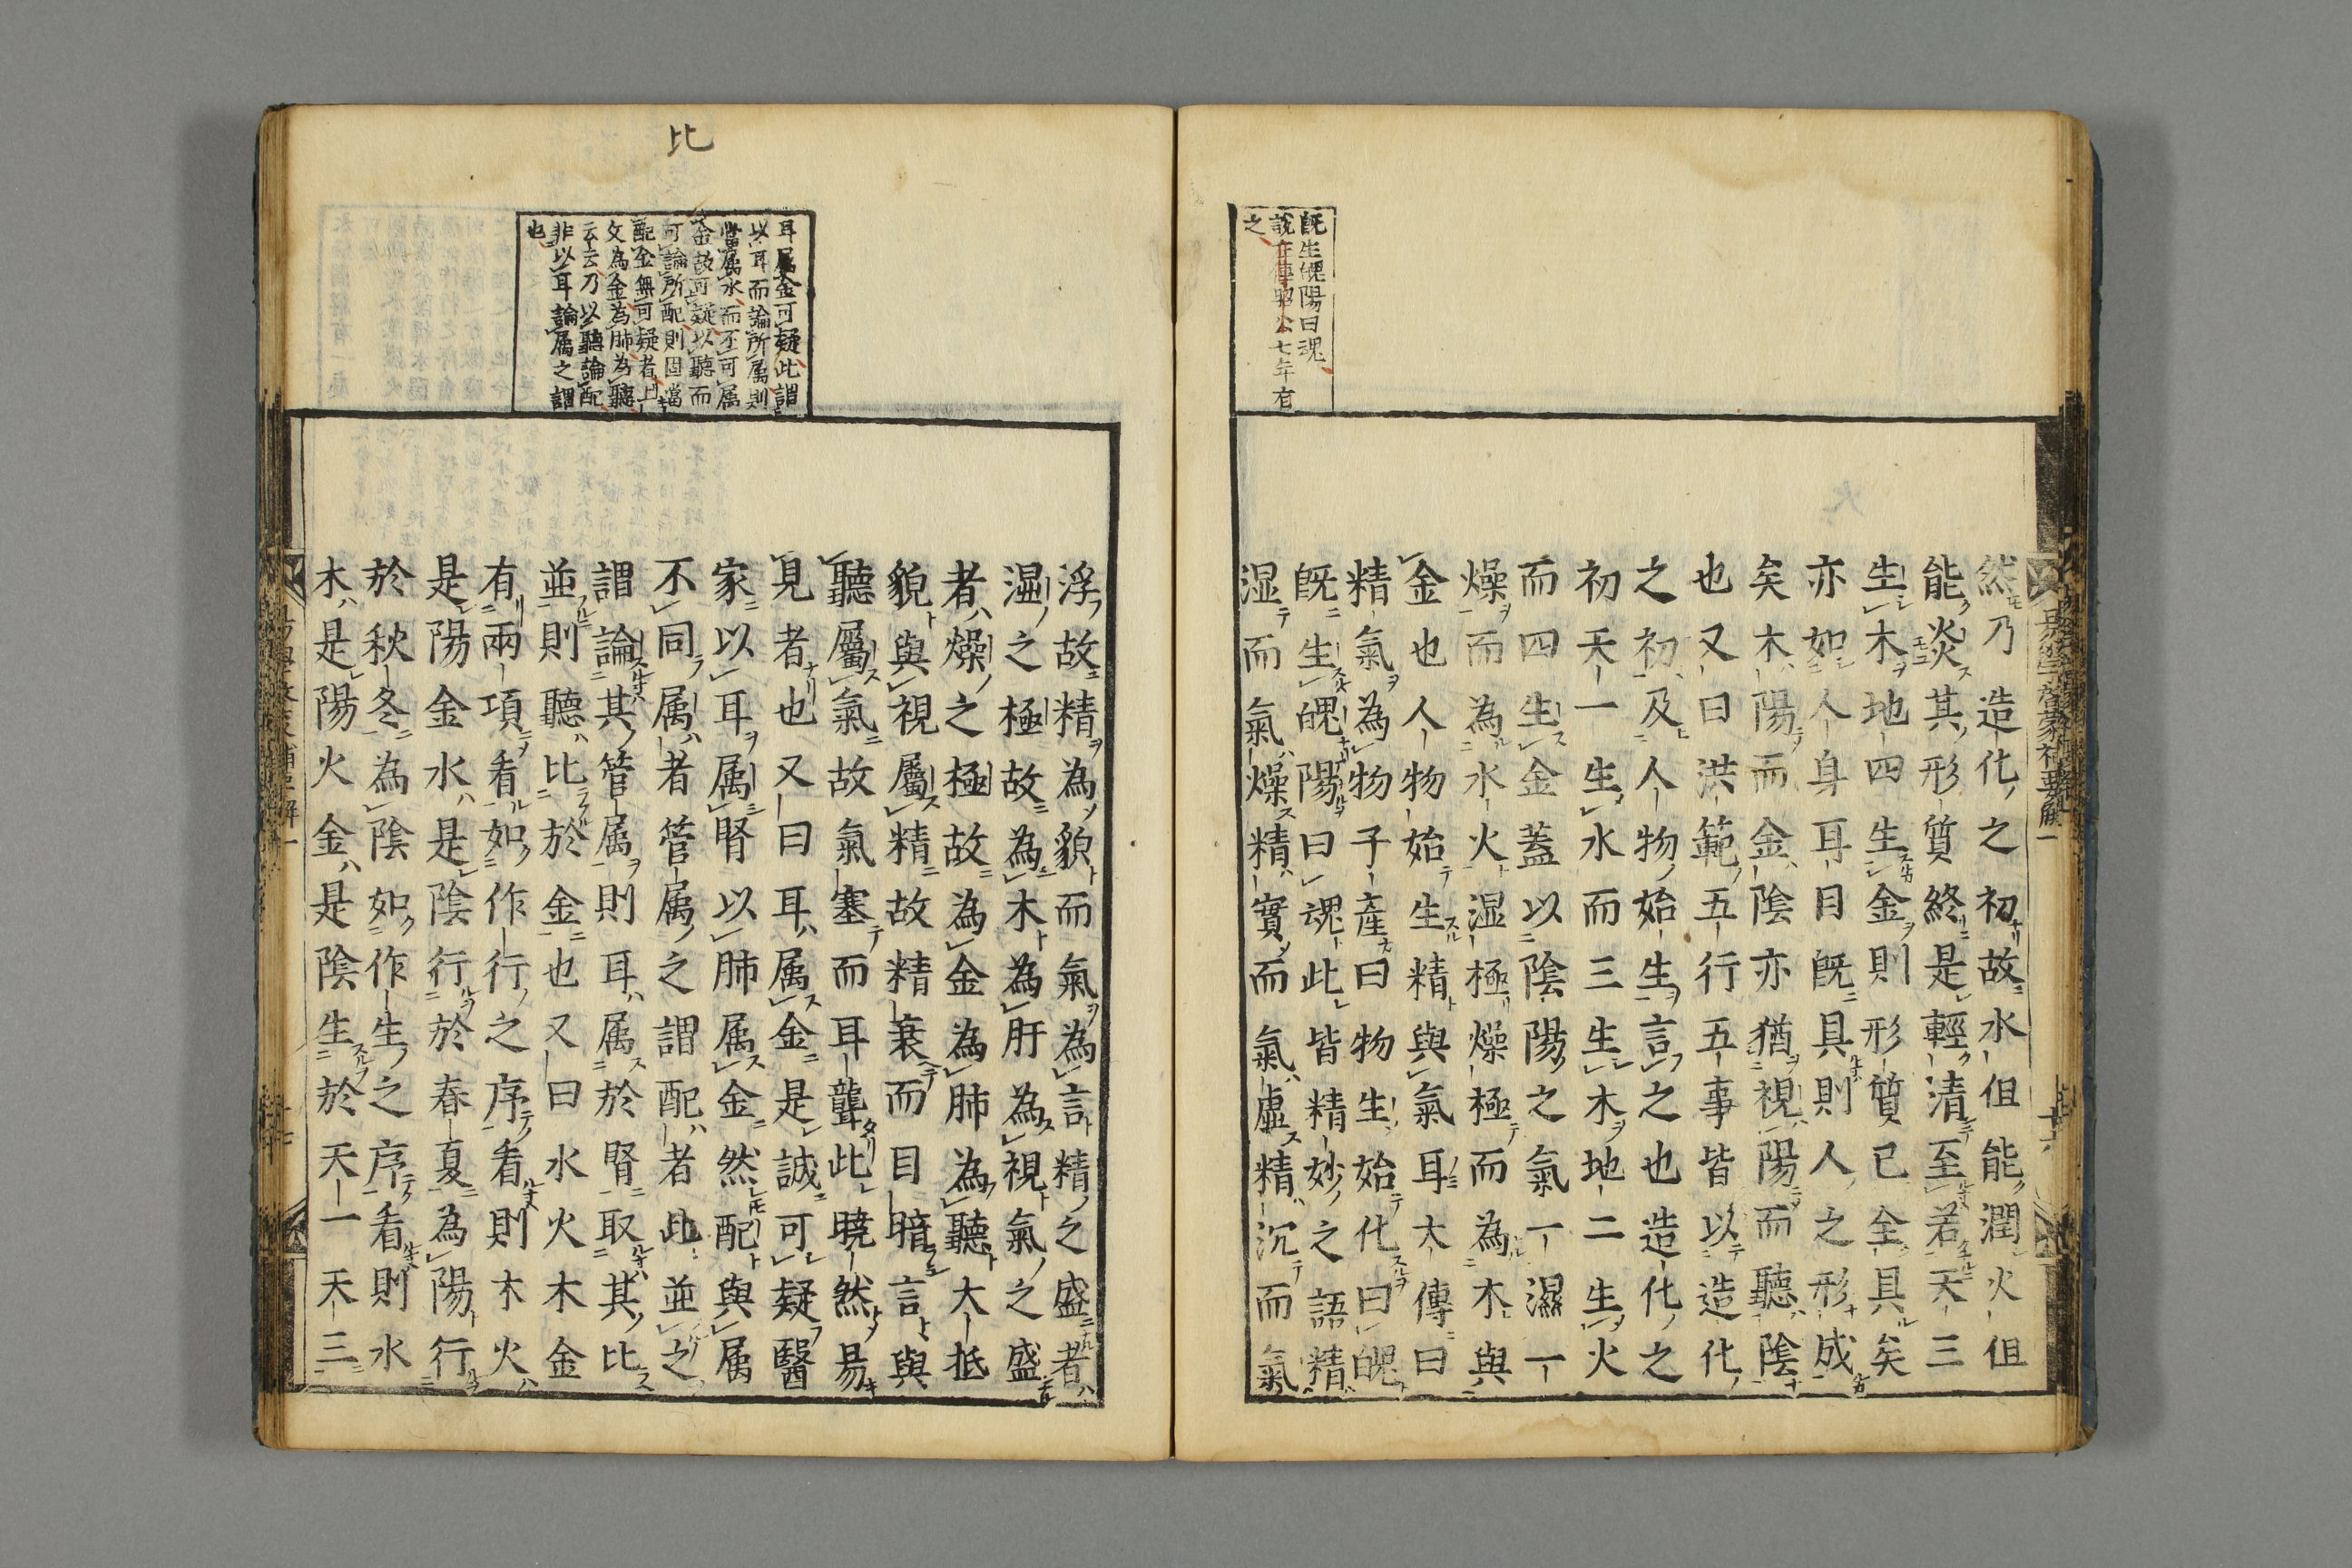 既生魄陽曰魂
説在傳昭公七年有
之
然乃造化之初故水但能潤火但
能炎其形質終是輕清至若天三
生木地四生金則形質已全具矣
亦如人身耳目既具則人之形成
矣木陽而金陰亦猶視陽而聽陰
也又曰洪範五行五事皆以造化
之初及人物始生言之也造化之
初天一生水而三生木地二生火
而四生金蓋以陰陽之氣一濕一
燥而為水火湿極燥極而為木與
金也人物始生精與氣耳大傳曰
精氣為物子產曰物生始化曰魄
既生魄陽曰魂此皆精妙之語精
湿而氣燥精實而氣虛精沉而氣
比
耳属金可疑此謂
以耳而論所属則
當属水而不可属
金故可疑以聽而
可論所配則固當
配金無可疑者上
文為金為肺為聽
云云乃以聽論配
非以耳論属之謂
也
浮故精為貌而氣為言精之盛者
濕之極故為木為肝為視氣之盛
者燥之極故為金為肺為聽大抵
貌與視屬精故精衰而目暗言與
聽屬氣故氣塞而耳聾此曉然易
見者也又曰耳属金是誠可疑醫
家以耳属腎以肺属金然配與属
不同属者管属之謂配者此並之
謂論其管属則耳属於腎取其比
並則聽比於金也又曰水火木金
有兩項看如作行之序看則木火
是陽金水是陰行於春夏為陽行
於秋冬為陰如作生之序看則水
木是陽火金是陰生於天一天三